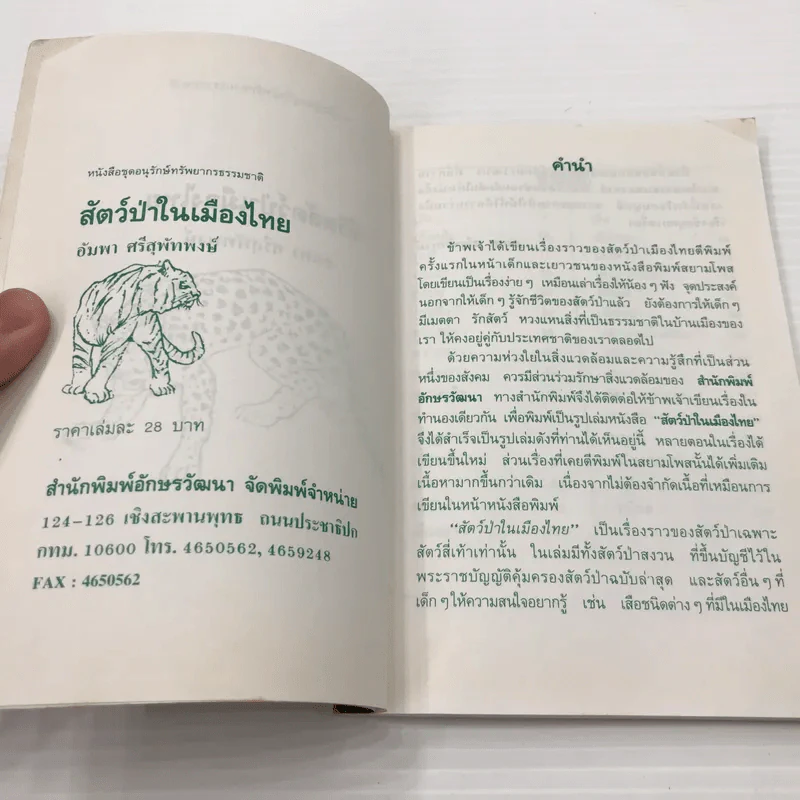 หนังสือชุดอนุรักษ์ทรัพยากรธรรมชาติ
สัตว์ป่าในเมืองไทย
อัมพา ศรีสุพัทพงษ์
ราคาเล่มละ 28 บาท
สำนักพิมพ์อักษรวัฒนา จัดพิมพ์จำหน่าย
124-126 เชิงสะพานพุทธ ถนนประชาธิปก
กทม. 10600 โทร. 4650562, 4659248
FAX : 4650562
คำนำ
ข้าพเจ้าได้เขียนเรื่องราวของสัตว์ป่าเมืองไทยตีพิมพ์
ครั้งแรกในหน้าเด็กและเยาวชนของหนังสือพิมพ์สยามโพส
โดยเขียนเป็นเรื่องง่าย ๆ เหมือนเล่าเรื่องให้น้อง ๆ ฟัง จุดประสงค์
นอกจากให้เด็ก ๆ รู้จักชีวิตของสัตว์ป่าแล้ว ยังต้องการให้เด็ก ๆ
มีเมตตา รักสัตว์ หวงแหนสิ่งที่เป็นธรรมชาติในบ้านเมืองของ
เรา ให้คงอยู่คู่กับประเทศชาติของเราตลอดไป
ด้วยความห่วงใยในสิ่งแวดล้อมและความรู้สึกที่เป็นส่วน
หนึ่งของสังคม ควรมีส่วนร่วมรักษาสิ่งแวดล้อมของ สำนักพิมพ์
อักษรวัฒนา ทางสำนักพิมพ์จึงได้ติดต่อให้ข้าพเจ้าเขียนเรื่องใน
ทำนองเดียวกัน เพื่อพิมพ์เป็นรูปเล่มหนังสือ "สัตว์ป่าในเมืองไทย"
จึงได้สำเร็จเป็นรูปเล่มดังที่ท่านได้เห็นอยู่นี้ หลายตอนในเรื่องได้
เขียนขึ้นใหม่ ส่วนเรื่องที่เคยตีพิมพ์ในสยามโพสนั้นได้เพิ่มเติม
เนื้อหามากขึ้นกว่าเดิม เนื่องจากไม่ต้องจำกัดเนื้อที่เหมือนการ
เขียนในหน้าหนังสือพิมพ์
"สัตว์ป่าในเมืองไทย" เป็นเรื่องราวของสัตว์ป่าเฉพาะ
สัตว์สี่เท้าเท่านั้น ในเล่มมีทั้งสัตว์ป่าสงวน ที่ขึ้นบัญชีไว้ใน
พระราชบัญญัติคุ้มครองสัตว์ป่าฉบับล่าสุด และสัตว์อื่น ๆ ที่
เด็ก ๆ ให้ความสนใจอยากรู้ เช่น เสือชนิดต่าง ๆ ที่มีในเมืองไทย